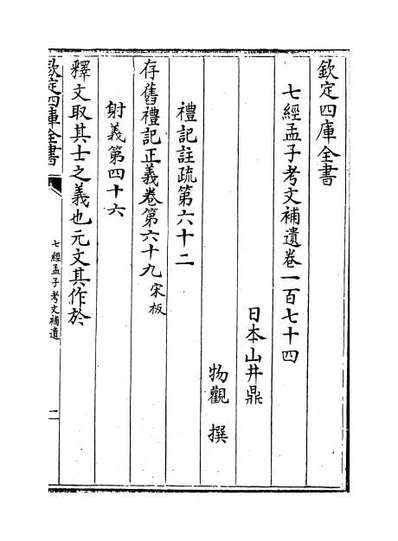 欽定四庫全書
七經孟子考文補遺卷一百七十四
日本山井鼎
物觀 撰
禮記註疏第六十二
存舊禮記正義卷第六十九宋板
射義第四十六
釋文取其士之義也元文其作於
欽定四庫全書
七經孟子考文補遺
一